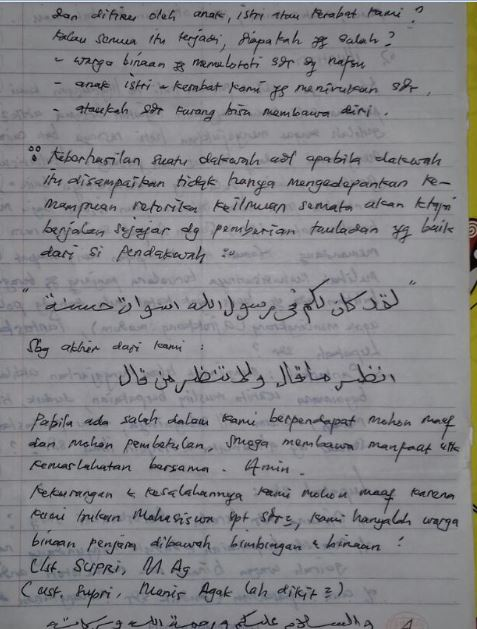 dan ditiru oleh anak, istri atau kerabat kami?
Kalau semua itu terjadi, siapakah yg salah?
- warga binaan yg memelototi sdr dg nafsu
- anak istri + kerabat kami yg menirukan sdr.
- ataukah sdr kurang bisa membawa diri.
Keberhasilan suatu dakwah adl apabila dakwah
itu disampaikan tidak hanya mengedepankan ke-
mampuan retorika keilmuan semata akan ttapi
berjalan sejajar dg pemberian tauladan yg baik
dari si pendakwah :
" لقد كان لكم في رسول الله اسوات حسنة "
Sbg akhir dari kami :
انظر ما قال ولا تنظر من قال
Pabila ada salah dalam kami berpendapat mohon maaf
dan mohon pembetulan, smoga membawa manfaat utk
kemaslahatan bersama. Amin.
Kekurangan & kesalahannya kami mohon maaf karena
kami bukan Mahasiswa spt sdr2, kami hanyalah warga
binaan penjara dibawah bimbingan & binaan :
Ust. Supri, M. Ag
(Ust. Supri, Manis Agak (ah dikit2)
والسلام عليكم ورحمة الله وبركاته